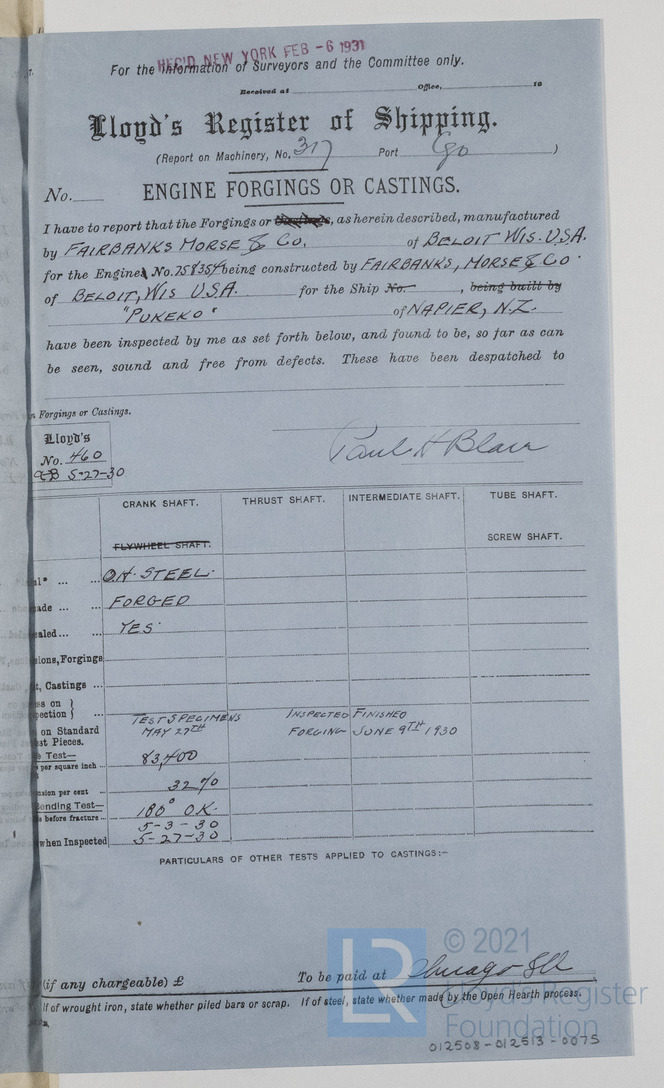 REC'D NEW YORK FEB -6 1931
For the Information of Surveyors and the Committee only.
Received at Office, 18
Lloyd's Register of Shipping.
(Report on Machinery, No. 317 Port Cgo )
No.
ENGINE FORGINGS OR CASTINGS.
I have to report that the Forgings or Castings, as herein described, manufactured
by FAIRBANKS MORSE & Co. of BELOIT WIS. U.S.A.
for the Engine No. 758354 being constructed by FAIRBANKS, MORSE & Co.
of BELOIT, WIS U.S.A. for the Ship No. , being built by
"PUKEKO" of NAPIER, N.Z.
have been inspected by me as set forth below, and found to be, so far as can
be seen, sound and free from defects. These have been despatched to
Forgings or Castings.
Lloyd's
No. 460
5-27-30
Paul H Blair
CRANK SHAFT. THRUST SHAFT. INTERMEDIATE SHAFT. TUBE SHAFT.
FLYWHEEL SHAFT. SCREW SHAFT.
al* ... ... O.H. STEEL.
ade ... ... FORGED
ealed... ... YES.
ions, Forgings
t, Castings ...
ss on }
pection } ... TEST SPECIMENS INSPECTED FINISHED
on Standard MAY 27TH FORGING JUNE 9TH 1930
st Pieces.
e Test—
per square inch ... 83,400
nsion per cent ... 32 %
ending Test—
before fracture ... 180° O.K.
5-3-30
when Inspected 5-27-30
PARTICULARS OF OTHER TESTS APPLIED TO CASTINGS:—
(if any chargeable) £ To be paid at Chicago Ill
If of wrought iron, state whether piled bars or scrap. If of steel, state whether made by the Open Hearth process.
LR © 2021
Lloyd's Register
Foundation
012508-012513-0075